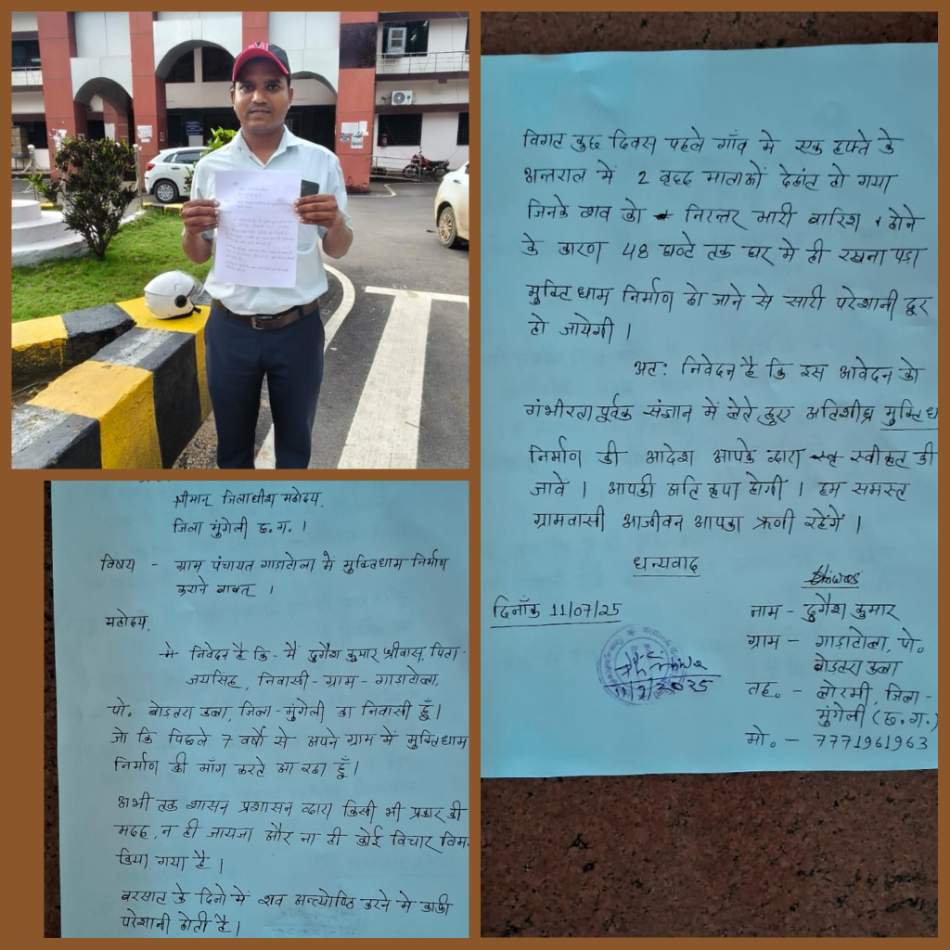 श्रीमान् जिलाधीश महोदय,
जिला मुंगेली छ.ग. ।
विषय - ग्राम पंचायत गाडाटोला में मुक्तिधाम निर्माण
कराने बाबत् ।
महोदय,
निवेदन है कि - मैं दुर्गेश कुमार श्रीवास, पिता -
जयसिंह, निवासी - ग्राम - गाडाटोला,
पो. बोडतरा कला, जिला - मुंगेली का निवासी हूँ।
जो कि पिछले 7 वर्षों से अपने ग्राम में मुक्तिधाम
निर्माण की माँग करते आ रहा हूँ।
अभी तक शासन प्रशासन द्वारा किसी भी प्रकार की
मदद, न ही जायजा और ना ही कोई विचार विम
किया गया है ।
बरसात के दिनो में शव अन्त्येष्टि करने मे काफी
परेशानी होती है।
विगत कुछ दिवस पहले गाँव मे एक हफ्ते के
अन्तराल में 2 वृद्द माताओं देहांत हो गया
जिनके शव को निरन्तर भारी बारिश होने
के कारण 48 घण्टे तक घर मे ही रखना पडा
मुक्ति धाम निर्माण हो जाने से सारी परेशानी दूर
हो जायेगी ।
अतः निवेदन है कि इस आवेदन को
गंभीरता पूर्वक संज्ञान में लेते हुए अतिशीघ्र मुक्ति धा
निर्माण की आदेश आपके द्वारा स्वीकृत की
जावे । आपकी अति कृपा होगी । हम समस्त
ग्रामवासी आजीवन आपका ऋणी रहेगें ।
धन्यवाद
दिनाँक 11/07/25
नाम - दुर्गेश कुमार
ग्राम - गाडाटोला, पो.
बोडतरा कला
तह. - लोरमी, जिला -
मुंगेली (छ.ग.)
मो. - 7771961963